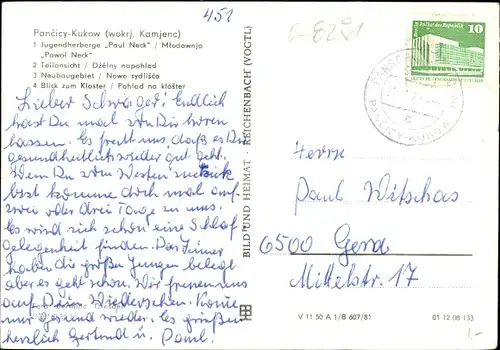 451
0-8291
Pančicy-Kukow (wokrj. Kamjenc)
1 Jugendherberge „Paul Neck" / Młodownja
„Pawoł Neck"
2 Teilansicht / Dźělny napohlad
3 Neubaugebiet / Nowe sydlišćo
4 Blick zum Kloster / Pohlad na klóšter
10
Lieber Schwager! Endlich
hast Du mal von Dir hören
lassen. Es freut uns, dass es Dir
gesundheitlich wieder gut geht.
Wenn Du vom Westen zurück
bist komme doch mal auf
zwei oder drei Tage zu uns.
Es wird sich schon eine Schlaf
gelegenheit finden. Das Zimmer
haben die großen Jungen belegt
aber es geht schon. Wir freuen uns
auf Dein Wiedersehen. Komme
nur gesund wieder. Es grüßen
herzlich Gertrud u. Paul.
BILD UND HEIMAT · REICHENBACH (VOGTL)
Herrn
Paul Witschas
6500 Gera
Mittelstr. 17
V 11 50 A 1/B 607/81
01 12 08 153
1,-